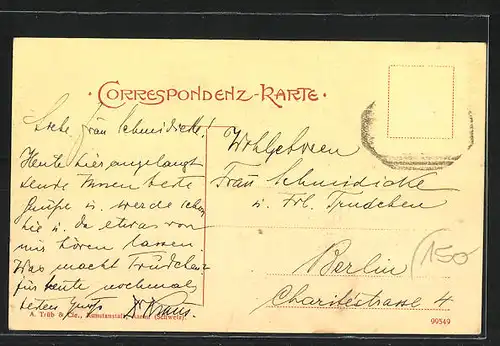 CORRESPONDENZ-KARTE.
Liebe Frau Schmidicke!
Heute hier angelangt
sende Ihnen beste
Grüße u. werde schon
hie u. da etwas von
mir hören lassen.
Was macht Trudchen
für heute nochmals
besten Gruß Dr Kraus.
Wohlgeboren
Frau Schmidicke
u. Frl. Trudchen
Berlin
Charitéstrasse 4
150
A. Trüb & Cie., Kunstanstalt, Aarau (Schweiz).
99549